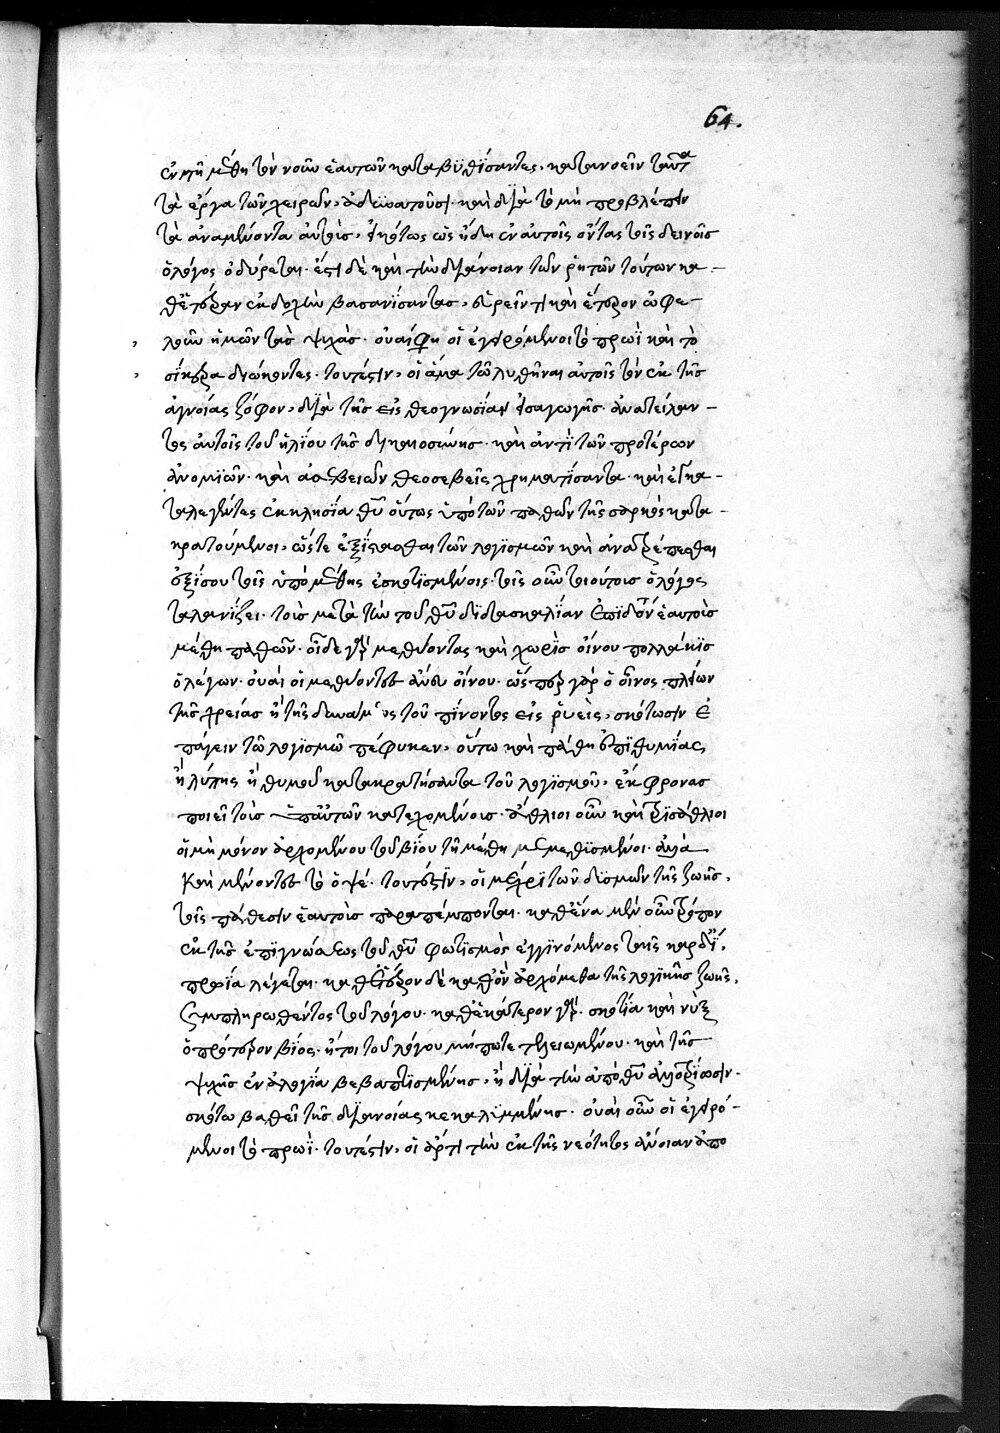 64.
ἐν τῇ μέθῃ τὸν νοῦν ἑαυτῶν καταβυθίσαντες, κατανοεῖν ταῦτα
τὰ ἔργα τῶν χειρῶν, ἀδυνατοῦσι. καὶ διὰ τὸ μὴ προβλέπειν
τὰ ἀναμένοντα αὐτοὺς, εἰκότως ὡς ἤδη ἐν αὐτοῖς ὄντας τοῖς δεινοῖς
ὁ λόγος ὀδύρεται. ἔστι δὲ καὶ τὴν διάνοιαν τῶν ῥητῶν τούτων κα-
θ' ἑτέραν ἐκδοχὴν βασανίσαντας, εὑρεῖν τι καὶ ἕτερον ὠφε-
λοῦν ἡμῶν τὰς ψυχάς. οὐαί φησι οἱ ἐγειρόμενοι τὸ πρωῒ καὶ τὸ
σίκερα διώκοντες. τουτέστιν, οἱ ἅμα τῷ λυθῆναι αὐτοῖς τὸν ἐκ τῆς
ἀγνοίας ζόφον, διὰ τῆς εἰς θεογνωσίαν εἰσαγωγῆς. ἀνατείλαν-
τος αὐτοῖς τοῦ ἡλίου τῆς δικαιοσύνης. καὶ ἀντὶ τῶν προτέρων
ἀνομιῶν. καὶ ἀσεβειῶν θεοσεβεῖς χρηματίσαντα. καὶ ἐγκα-
ταλεγέντες ἐκκλησίᾳ θῦ οὕτως ὑπὸ τῶν παθῶν τῆς σαρκὸς κατα-
κρατούμενοι, ὥστε ἐξίστασθαι τῶν λογισμῶν καὶ ἀνατρέπεσθαι
ἐξίσου τοῖς ὑπὸ μέθης ἐσκοτισμένοις. τοὺς οὖν τοιούτους ὁ λόγος
ταλανίζει. τοὺς μετὰ τὴν τοῦ θῦ διδασκαλίαν ἐπιδόντας ἑαυτοὺς
μέθῃ παθῶν. οἶδε γὰρ μεθύοντας καὶ χωρὶς οἴνου πολλάκις
ὁ λέγων. οὐαὶ οἱ μεθύοντες ἄνευ οἴνου. ὥσπερ γὰρ ὁ οἶνος πλέων
τῆς χρείας ἢ τῆς δυνάμεως τοῦ πίνοντος εἰς ῥυεὶς, σκότωσιν ἐ
πάγειν τῷ λογισμῷ πέφυκεν, οὕτω καὶ πάθη ἐπιθυμίας
ἢ λύπης ἢ θυμοῦ κατακρατήσαντα τοῦ λογισμοῦ, ἔκφρονας
ποιεῖ τοὺς ὑπ' αὐτῶν κατεχομένους. ἄθλιοι οὖν καὶ τρισάθλιοι
οἱ μὴ μόνον ἀρχομένου τοῦ βίου τῇ μέθῃ μεμεθυσμένοι. ἀλλὰ
καὶ μένοντες τὸ ὀψέ. τουτέστιν, οἱ μέχρι τῶν δυσμῶν τῆς ζωῆς,
τοῖς πάθεσιν ἑαυτοὺς παραπέμπονται. καθ' ἕνα μὲν οὖν τρόπον
ἐκ τῆς ἐπιγνώσεως τοῦ θῦ φωτισμὸς ἐγγινόμενος ταῖς καρδί,
πρωία λέγεται. καθ' ἕτερον δὲ καθ' ὃν ἀρχόμεθα τῆς λογικῆς ζωῆς,
συμπληρωθέντος τοῦ λόγου. καθ' ἑκάτερον γὰρ. σκοτία καὶ νὺξ
ὁ πρότερον βίος. ἤτοι τοῦ λόγου μήπωτε τελειωμένου. καὶ τῆς
ψυχῆς ἐν ἀλογίᾳ βεβαπτισμένης, ἢ διὰ τὴν ἀπὸ θῦ ἀλλοτρίωσιν.
σκότω βαθεῖ τῆς διανοίας κεκαλυμμένης. οὐαὶ οὖν οἱ ἐγειρό-
μενοι τὸ πρωῒ. τουτέστιν, οἱ ἄρτι τὴν ἐκ τῆς νεότητος ἄνοιαν ἀπο